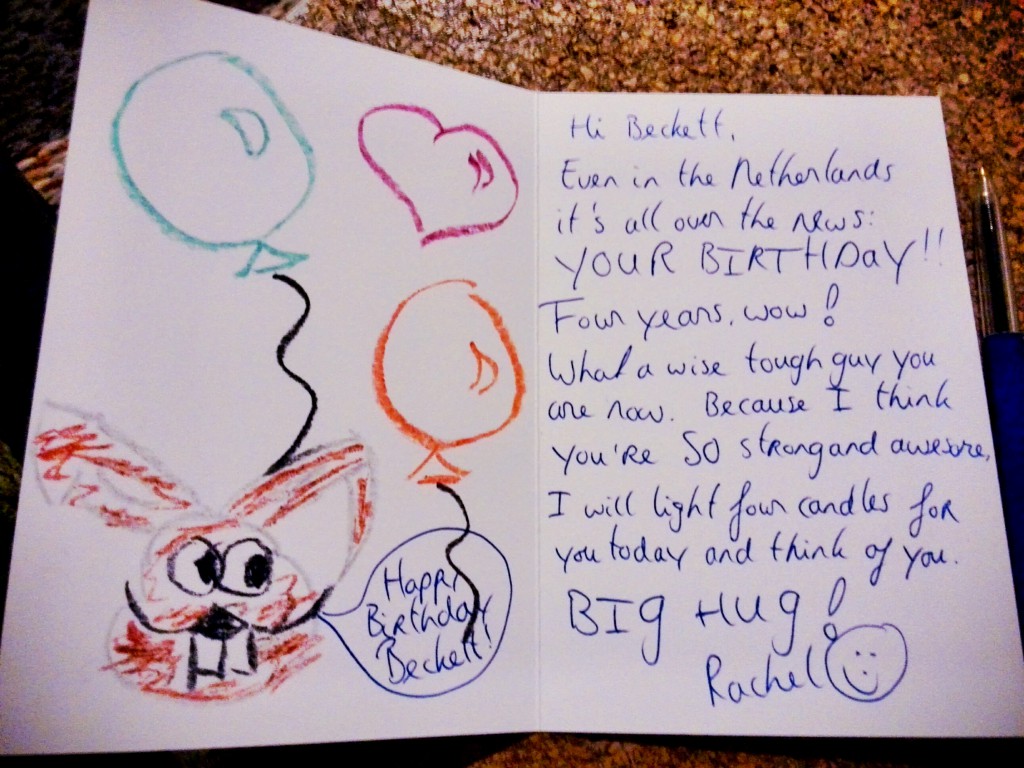 Happy
Birthday
Beckett!
Hi Beckett,
Even in the Netherlands
it's all over the news:
YOUR BIRTHDAY!!
Four years, wow!
What a wise tough guy you
are now. Because I think
you're SO strong and awesome,
I will light four candles for
you today and think of you.
BIG HUG!
Rachel